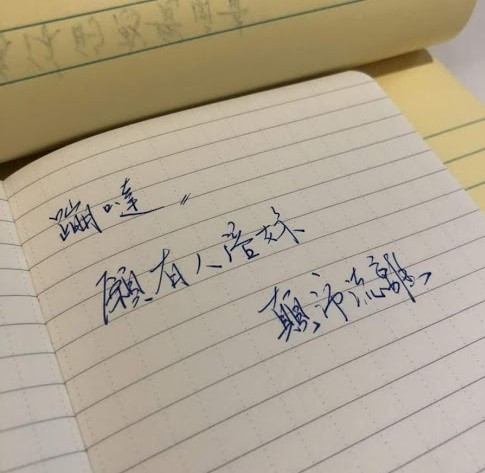 蹦噠
願有人陪妳
顛沛流離